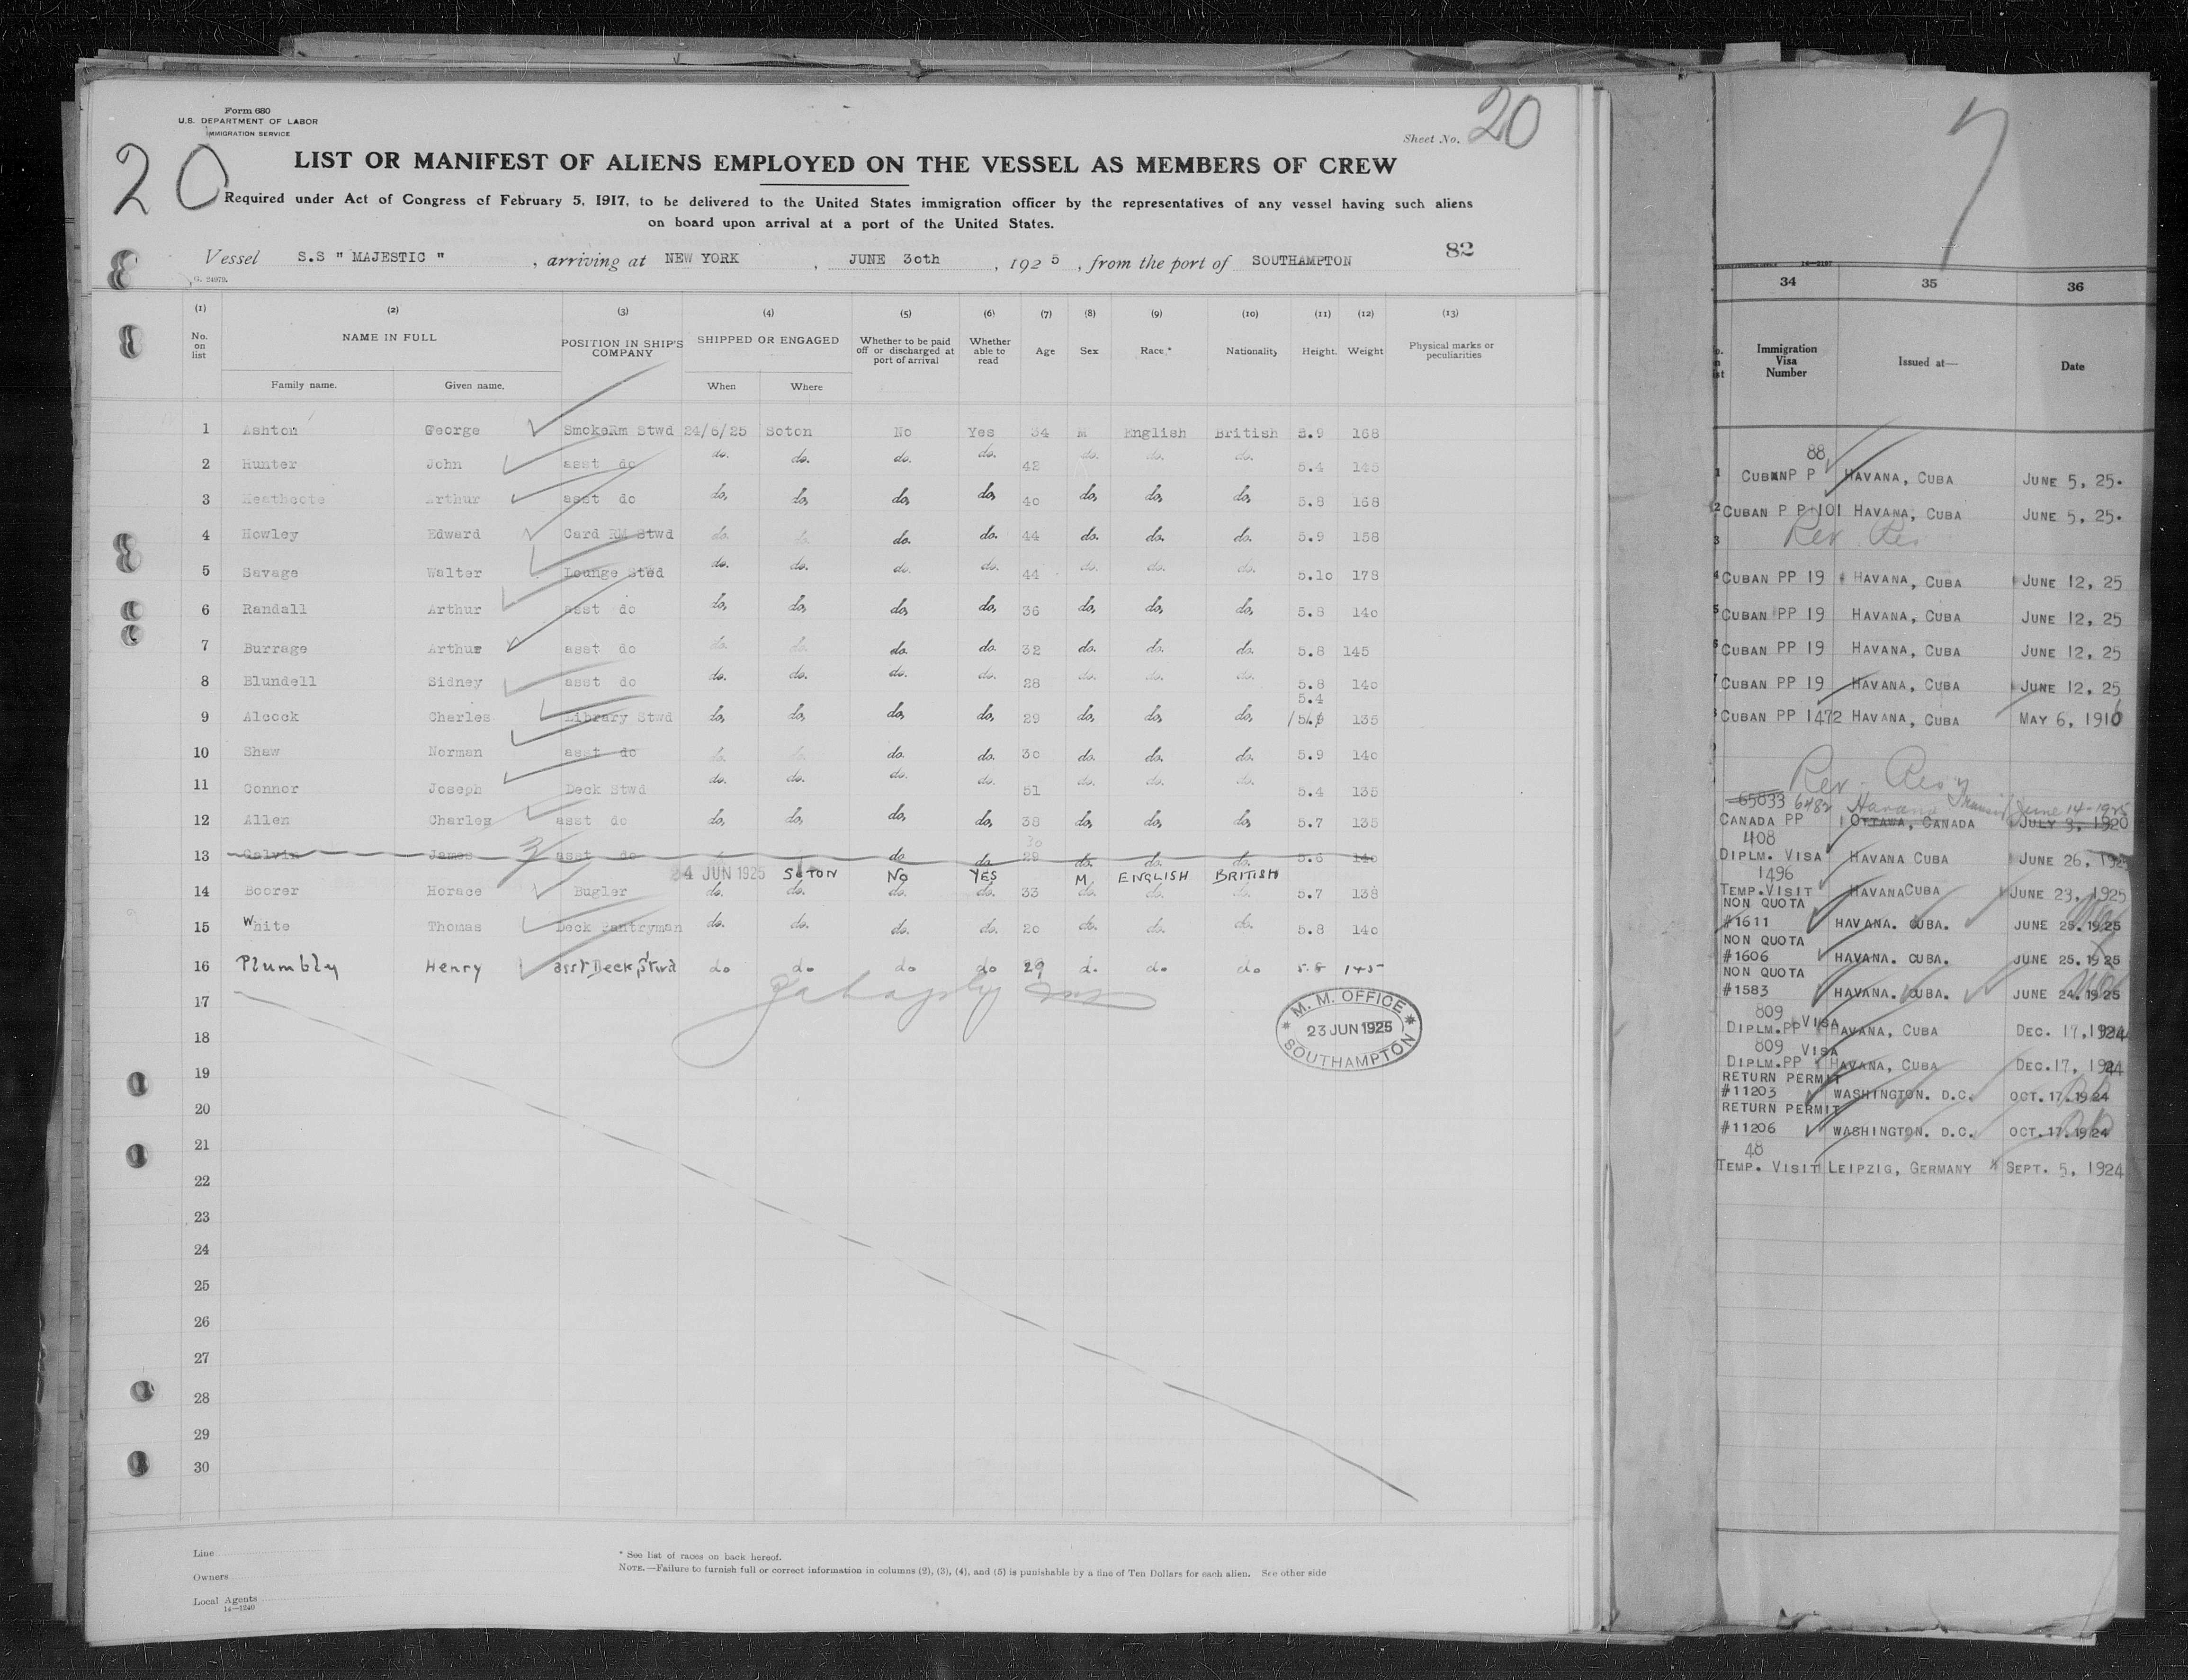 Form 680
U.S. DEPARTMENT OF LABOR
IMMIGRATION SERVICE
Sheet No. 20
20
LIST OR MANIFEST OF ALIENS EMPLOYED ON THE VESSEL AS MEMBERS OF CREW
Required under Act of Congress of February 5, 1917, to be delivered to the United States immigration officer by the representatives of any vessel having such aliens
on board upon arrival at a port of the United States.
Vessel S.S " MAJESTIC " , arriving at NEW YORK , JUNE 30th , 192 5 , from the port of SOUTHAMPTON 82
G. 24979.
(1) (2) (3) (4) (5) (6) (7) (8) (9) (10) (11) (12) (13)
No. on list NAME IN FULL POSITION IN SHIP'S COMPANY SHIPPED OR ENGAGED Whether to be paid off or discharged at port of arrival Whether able to read Age Sex Race.* Nationality Height. Weight Physical marks or peculiarities
Family name. Given name. When Where
1 Ashton George SmokeRm Stwd 24/6/25 Soton No Yes 34 M English British 5.9 168
2 Hunter John asst do do. do. do. do. 42 do. do. do. 5.4 145
3 Heathcote Arthur asst do do, do, do, do, 40 do, do, do, 5.8 168
4 Howley Edward Card RM Stwd do. do. do. do. 44 do. do. do. 5.9 158
5 Savage Walter Lounge Stwd do. do. do. do. 44 do. do. do. 5.10 178
6 Randall Arthur asst do do, do, do, do, 36 do, do, do, 5.8 140
7 Burrage Arthur asst do do. do. do. do. 32 do. do. do. 5.8 145
8 Blundell Sidney asst do do. do. do. do. 28 do. do. do. 5.8 140
5.4
9 Alcock Charles Library Stwd do, do, do, do, 29 do, do, do, 135
10 Shaw Norman asst do do. do. do. do. 30 do. do. do. 5.9 140
11 Connor Joseph Deck Stwd do. do. do. do. 51 do. do. do. 5.4 135
12 Allen Charles asst do do, do, do, do, 38 do, do, do, 5.7 135
30
13 Galvin James asst do do do. 29 do. do. do. 5.6 140
24 JUN 1925 SOTON NO YES M. ENGLISH BRITISH
14 Boorer Horace Bugler do. do. do. do. 33 do. do. do. 5.7 138
15 White Thomas Deck Pantryman do. do. do. do. 20 do. do. do. 5.8 140
16 Plumbly Henry asst Deck Stwd do do do do 29 do do do 5.8 145
17
M. M. OFFICE
23 JUN 1925
SOUTHAMPTON
18
19
20
21
22
23
24
25
26
27
28
29
30
Line
Owners
Local Agents
14—1240
* See list of races on back hereof.
NOTE.—Failure to furnish full or correct information in columns (2), (3), (4), and (5) is punishable by a fine of Ten Dollars for each alien. See other side
7
14—2197
34 35 36
Immigration Visa Number Issued at— Date
88
1 CUBAN P P HAVANA, CUBA JUNE 5, 25.
2 CUBAN P P 101 HAVANA, CUBA JUNE 5, 25.
3 Rev. Res
4 CUBAN PP 19 HAVANA, CUBA JUNE 12, 25
5 CUBAN PP 19 HAVANA, CUBA JUNE 12, 25
6 CUBAN PP 19 HAVANA, CUBA JUNE 12, 25
7 CUBAN PP 19 HAVANA, CUBA JUNE 12, 25
8 CUBAN PP 1472 HAVANA, CUBA MAY 6, 1916
Rev. Res
65833 6482 Havana Transit June 14-1925
CANADA PP OTTAWA, CANADA JULY 3, 1920
408
DIPLM. VISA HAVANA CUBA JUNE 26, 1925
1496
TEMP. VISIT HAVANA CUBA JUNE 23, 1925
NON QUOTA
#1611 HAVANA. CUBA. JUNE 25. 1925
NON QUOTA
#1606 HAVANA. CUBA. JUNE 25. 1925
NON QUOTA
#1583 HAVANA. CUBA. JUNE 24. 1925
809 VISA
DIPLM.PP HAVANA, CUBA DEC. 17, 1924
809 VISA
DIPLM.PP HAVANA, CUBA DEC.17, 1924
RETURN PERMIT
#11203 WASHINGTON. D.C. OCT. 17. 1924
RETURN PERMIT
#11206 WASHINGTON. D.C. OCT. 17. 1924
48
TEMP. VISIT LEIPZIG, GERMANY SEPT. 5, 1924